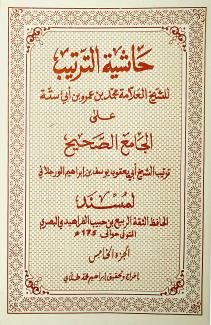 حاشية الترتيب
للشيخ العلامة محمد بن عمرو بن أبي ستة
على
الجامع الصحيح
ترتيب الشيخ أبي يعقوب يوسف بن إبراهيم الورجلاني
لمسند
الحافظ الثقة الربيع بن حبيب الفراهيدي البصري
المتوفى حوالي ١٧٥ هـ
الجزء الخامس
إخراج وتحقيق إبراهيم محمد طلاي